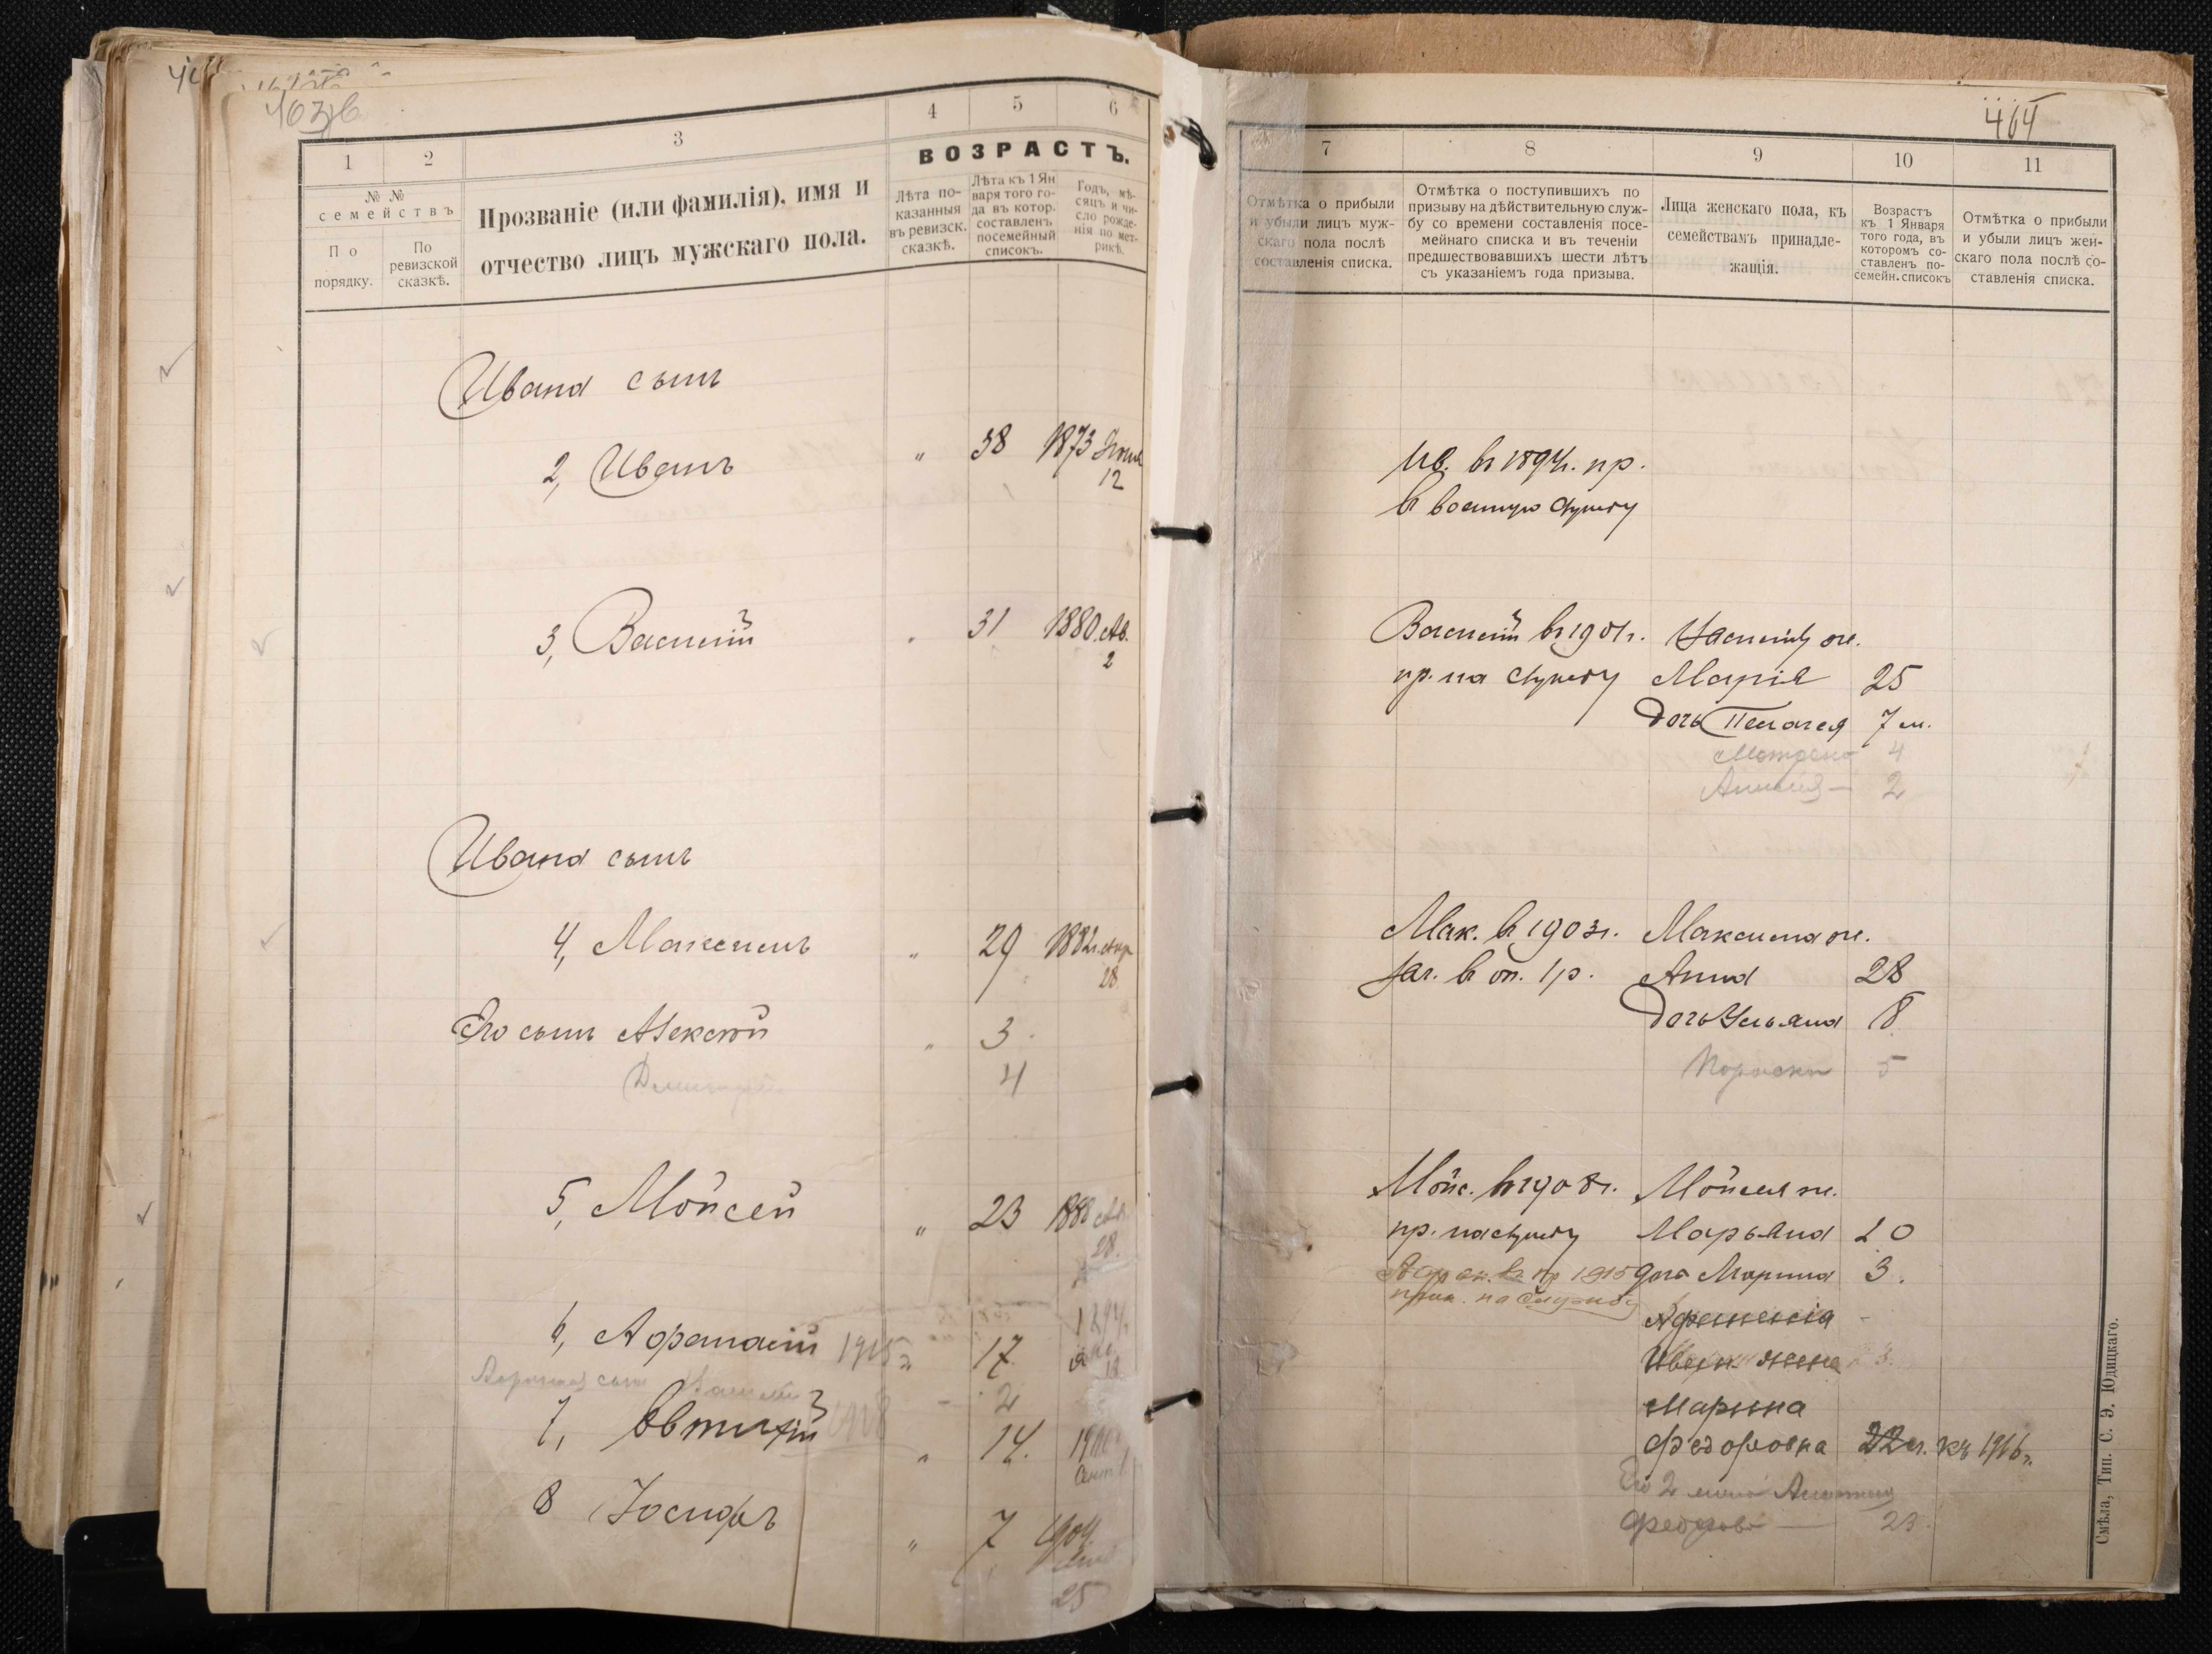 463об
1
2
3
4
5
6
№ №
семействъ
По порядку.
По ревизской сказкѣ.
Прозваніе (или фамилія), имя и
отчество лицъ мужскаго пола.
ВОЗРАСТЪ.
Лѣта по-
казанныя
въ ревизск.
сказкѣ.
Лѣта къ 1 Ян
варя того го-
да въ котор.
составленъ
посемейный
списокъ.
Годъ, мѣ-
сяцъ и чи-
сло рожде-
нія по мет-
рикѣ.
Ивана сынъ
2, Иванъ " 38 1873 Іюня
12
3, Василій " 31 1880. Ав.
2
Ивана сынъ
4, Максимъ " 29 1882г. Апр
28.
Его сынъ Алексѣй " 3.
Димитрій 4
5, Мойсей " 23 1888
28.
6, Афанасій 1915г. " 17. 1894
18
2
7, Евтихій 1918 " 14.
8 Іосифъ " 7 1904.
25
464
7
8
9
10
11
Отмѣтка о прибыли
и убыли лицъ муж-
скаго пола послѣ
составленія списка.
Отмѣтка о поступившихъ по
призыву на дѣйствительную служ-
бу со времени составленія посе-
мейнаго списка и въ теченіи
предшествовавшихъ шести лѣтъ
съ указаніемъ года призыва.
Лица женскаго пола, къ
семействамъ принадле-
жащія.
Возрастъ
къ 1 Января
того года, въ
которомъ со-
ставленъ по-
семейн. списокъ
Отмѣтка о прибыли
и убыли лицъ жен-
скаго пола послѣ со-
ставленія списка.
Ив. въ 1894г. пр.
въ военную службу
Василій въ 1901г. Василія ж.
пр. на службу Марія 25
дочь Пелагея 7 м.
Матрена 4
2
Мак. въ 1903г. Максима ж.
зач. въ оп. 1 р. Анна 28
дочь Ульяна 8
Параска 5
Мойс. въ 1908г. Мойсея ж.
пр. на службу Марьяна 20
1915 дочь Марина 3.
на службу
жена
Марина
Федоровна 22 л. къ 1916г.
Его 2 жена
23.
Смѣла, Тип. С. Э. Юдицкаго.